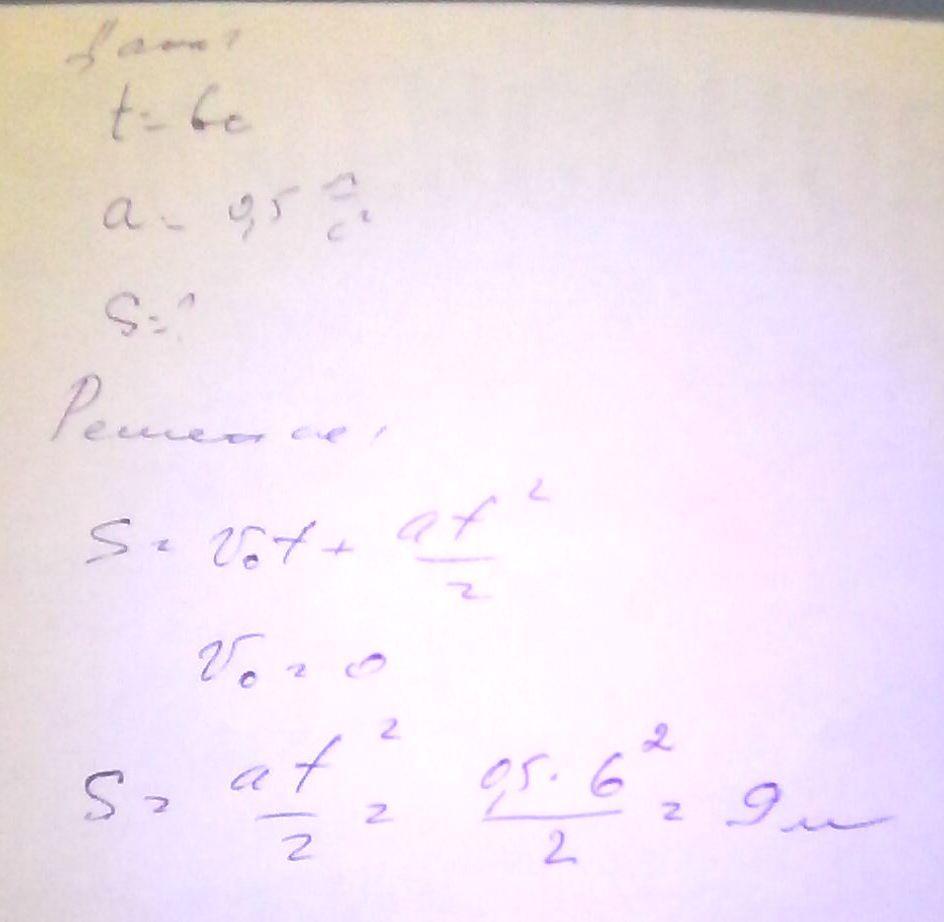 Дано:
t = 6с
a = 0,5 м/с²
S = ?
Решение:
S = v₀t + at²/2
v₀ = 0
S = at²/2 = 0,5 · 6²/2 = 9 м